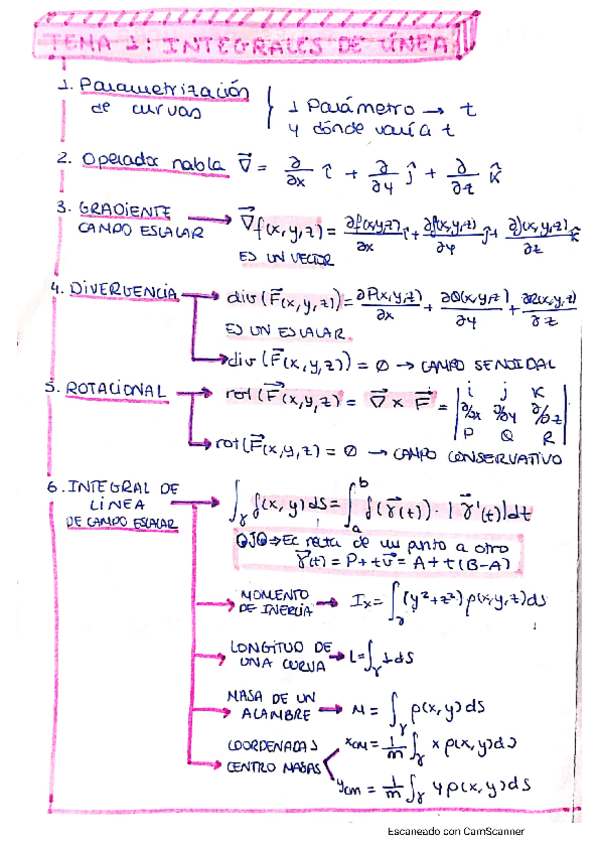 TEMA 1: INTEGRALES DE LÍNEA
1. Parametrización de curvas
1 Parámetro → t
y dónde varía t
2. Operador nabla ∇⃗ = ∂/∂x î + ∂/∂y ĵ + ∂/∂z k̂
3. GRADIENTE CAMPO ESCALAR → ∇⃗f(x,y,z) = ∂f(x,y,z)/∂x î + ∂f(x,y,z)/∂y ĵ + ∂f(x,y,z)/∂z k̂
ES UN VECTOR
4. DIVERGENCIA → div(F⃗(x,y,z)) = ∂P(x,y,z)/∂x + ∂Q(x,y,z)/∂y + ∂R(x,y,z)/∂z
ES UN ESCALAR.
→ div(F⃗(x,y,z)) = 0 → CAMPO SENOIDAL
5. ROTACIONAL → rot(F⃗(x,y,z) = ∇⃗ x F⃗ = | i j k |
| ∂/∂x ∂/∂y ∂/∂z |
| P Q R |
→ rot(F⃗(x,y,z) = 0 → CAMPO CONSERVATIVO
6. INTEGRAL DE LÍNEA DE CAMPO ESCALAR → ∫γ f(x,y)ds = ∫ₐᵇ f(γ⃗(t)) · |γ⃗'(t)|dt
OJO ⇒ Ec recta de un punto a otro
γ⃗(t) = P + tv⃗ = A + t(B-A)
MOMENTO DE INERCIA → Ix = ∫γ (y²+z²) ρ(x,y,z)ds
LONGITUD DE UNA CURVA → L = ∫γ 1 ds
MASA DE UN ALAMBRE → M = ∫γ ρ(x,y)ds
COORDENADAS CENTRO MASAS
xcm = 1/m ∫γ x ρ(x,y)ds
ycm = 1/m ∫γ y ρ(x,y)ds
Escaneado con CamScanner